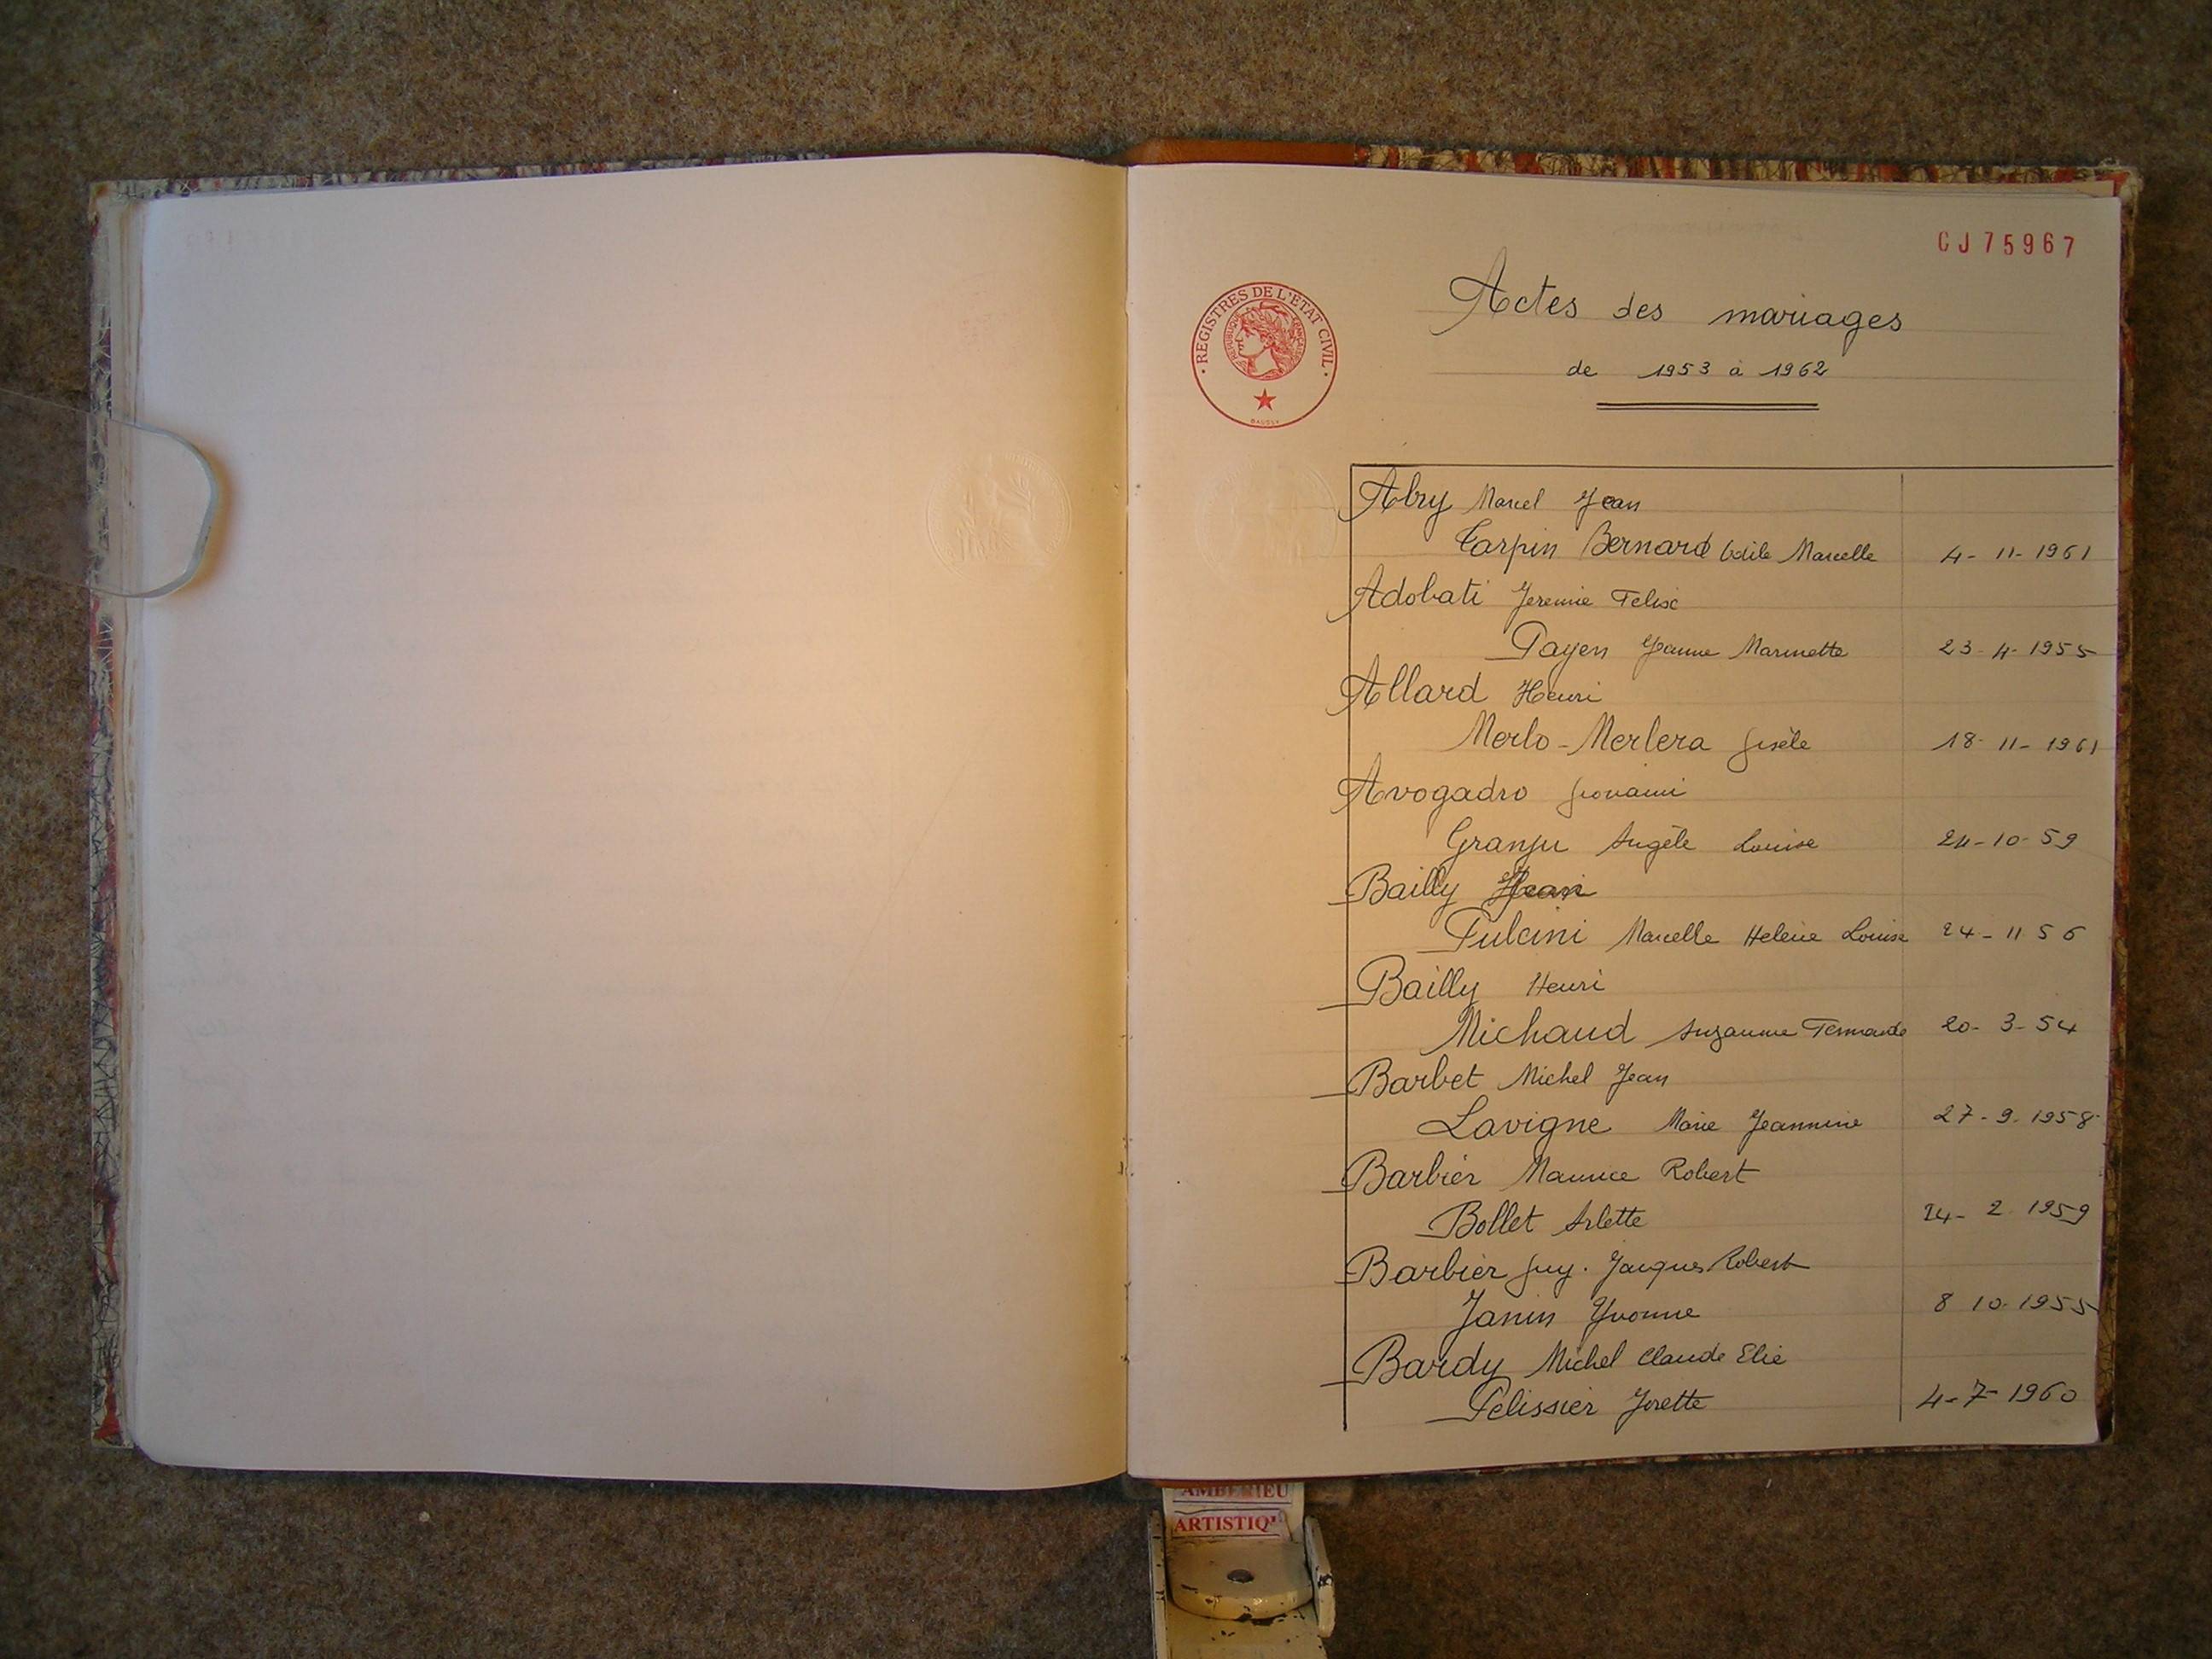 CJ75967
REGISTRES DE L'ETAT CIVIL
REPUBLIQUE FRANÇAISE
Actes des mariages
de 1953 à 1962
Abry Marcel Jean
Carpin Bernard Odile Marcelle 4-11-1961
Adobati Jeremie Felix
Payen Jeanne Marinette 23-4-1955
Allard Henri
Merlo-Merlera Gisèle 18-11-1961
Avogadro Giovanni
Granju Angèle Louise 24-10-59
Bailly Jean
Fulcini Marcelle Helène Louise 24-11 56
Bailly Henri
Michaud Suzanne Fernande 20-3-54
Barbet Michel Jean
Lavigne Marie Jeannine 27-9-1958
Barbier Maurice Robert
Bollet Arlette 24-2 1959
Barbier Guy. Jacques Robert
Janin Yvonne 8 10-1955
Bardy Michel Claude Elie
Pelissier 4-7-1960
AMBERIEU
ARTISTIQ